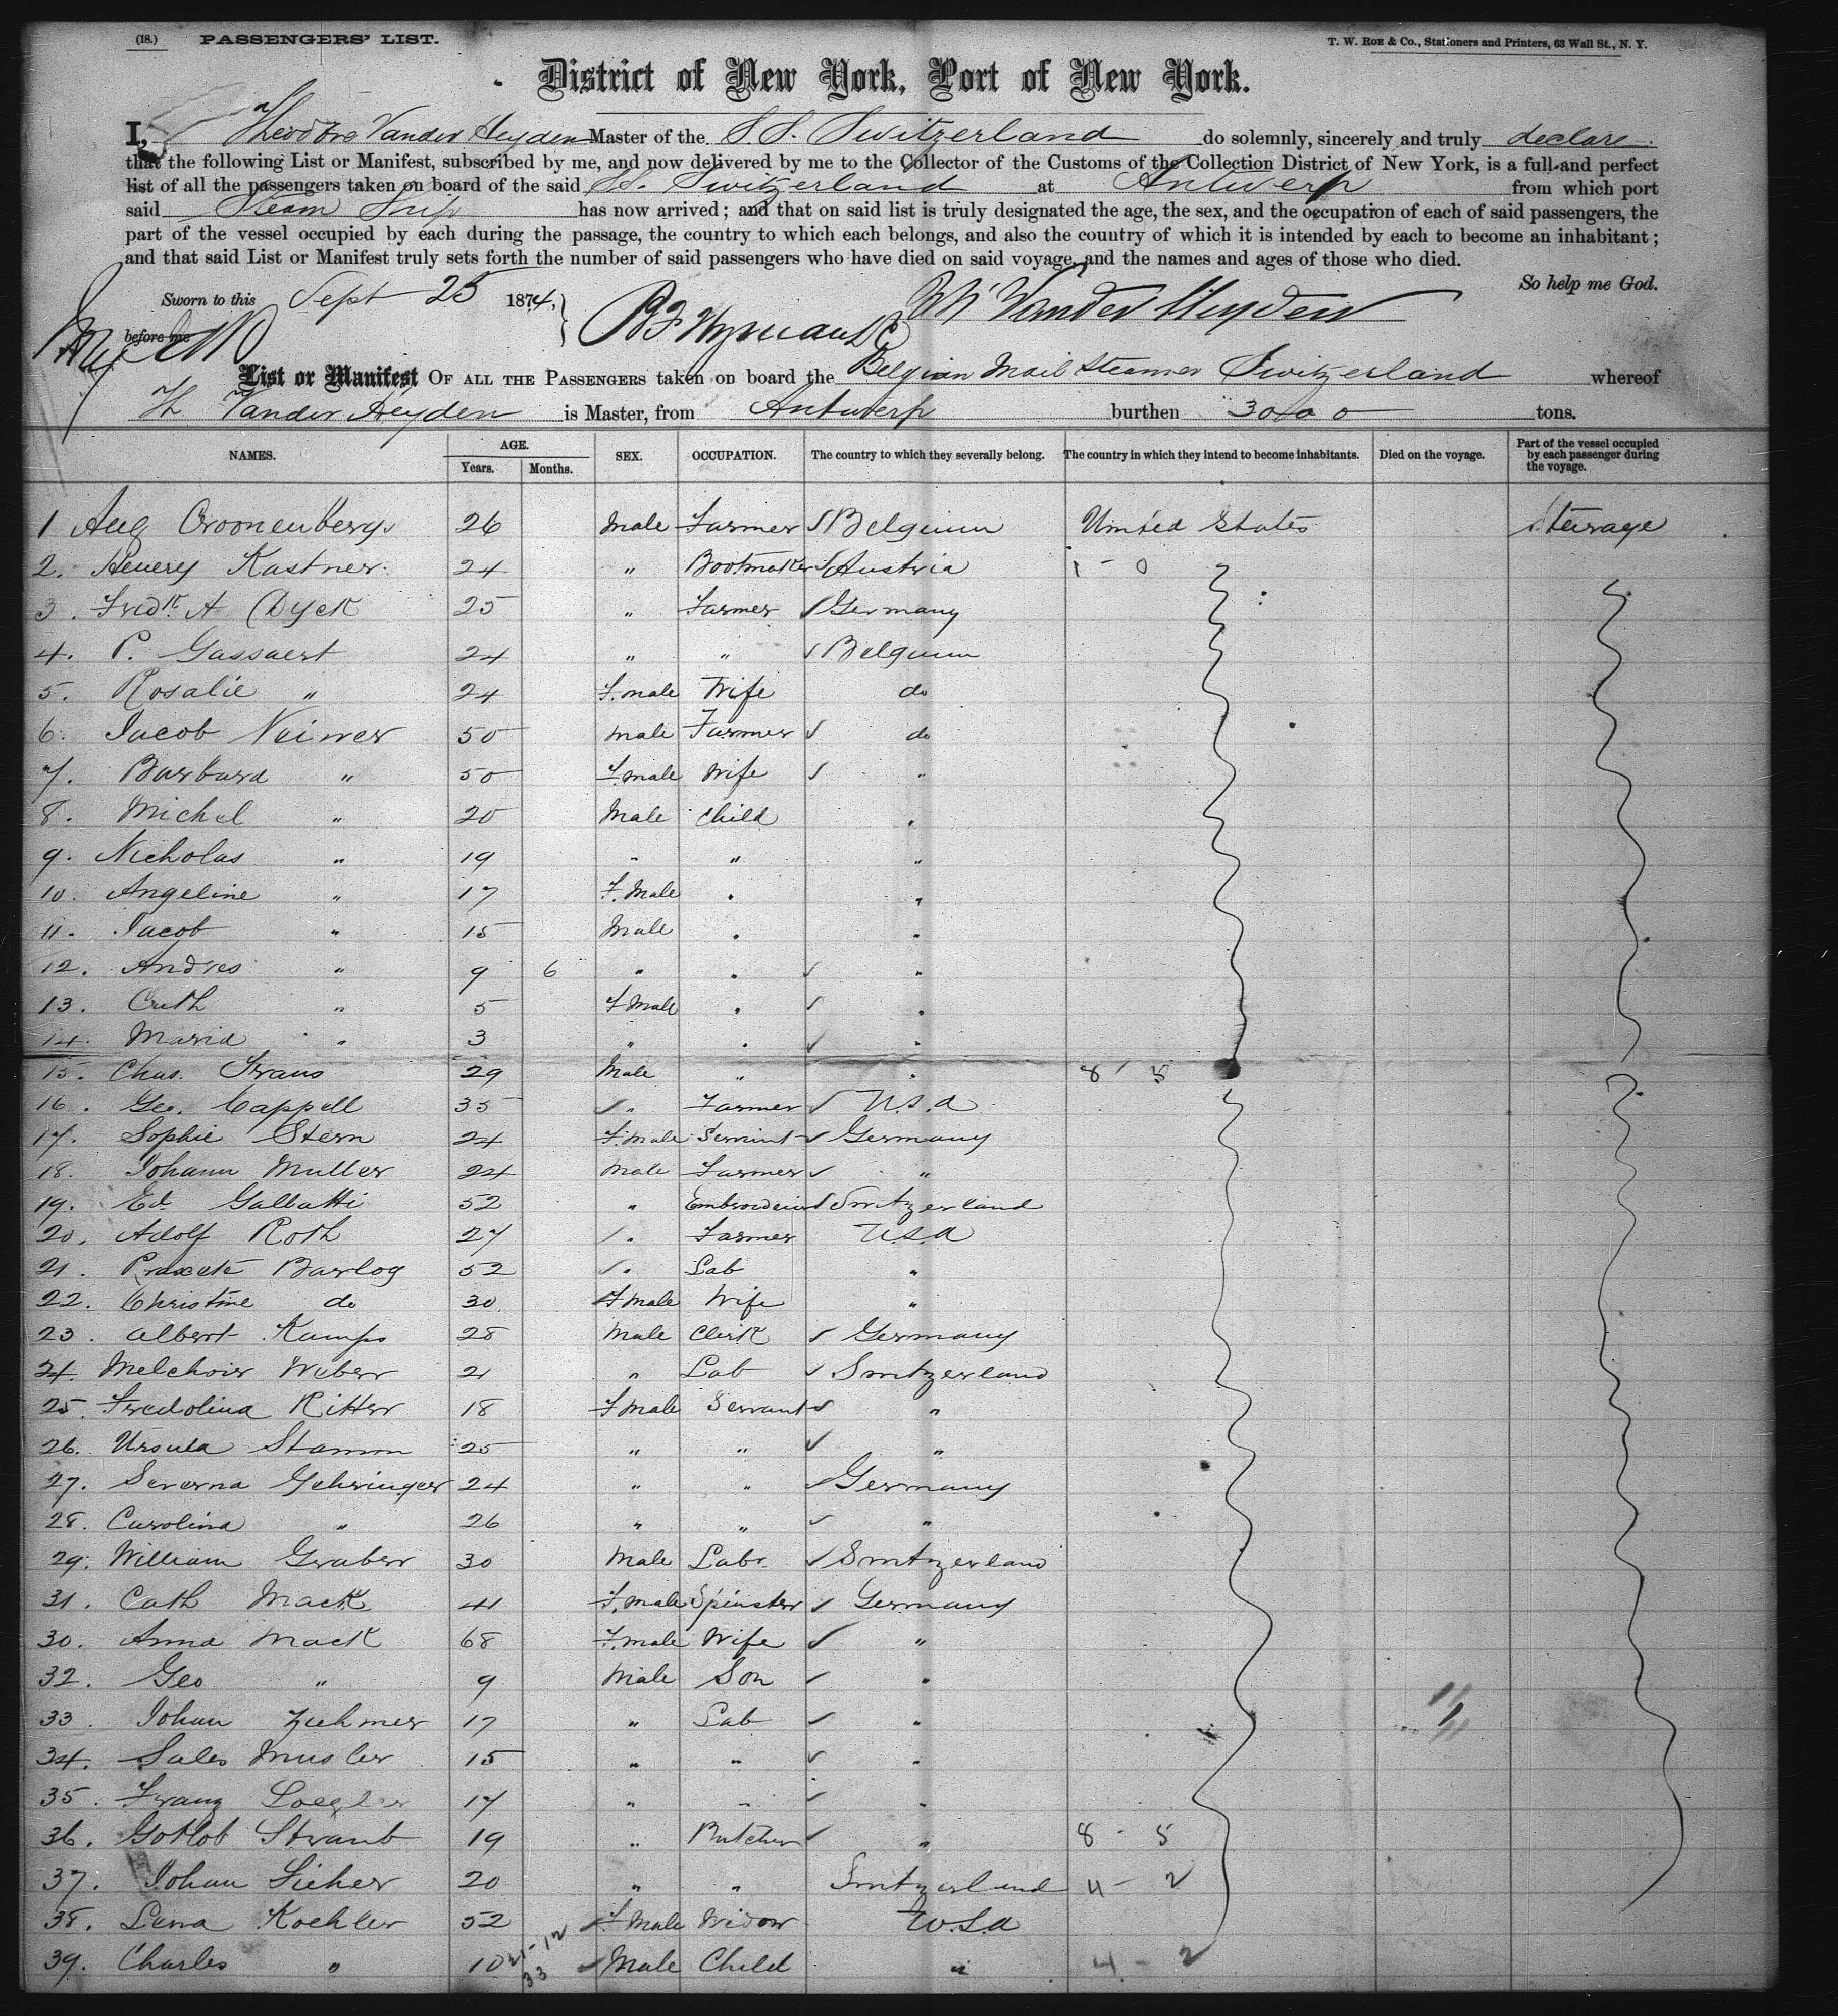 (18.) PASSENGERS' LIST. T. W. Roe & Co., Stationers and Printers, 63 Wall St., N. Y.
District of New York, Port of New York.
I, Theodore Vander Heyden Master of the S.S. Switzerland do solemnly, sincerely and truly declare
that the following List or Manifest, subscribed by me, and now delivered by me to the Collector of the Customs of the Collection District of New York, is a full and perfect
list of all the passengers taken on board of the said SS. Switzerland at Antwerp from which port
said Steam Ship has now arrived; and that on said list is truly designated the age, the sex, and the occupation of each of said passengers, the
part of the vessel occupied by each during the passage, the country to which each belongs, and also the country of which it is intended by each to become an inhabitant;
and that said List or Manifest truly sets forth the number of said passengers who have died on said voyage, and the names and ages of those who died.
So help me God.
Sworn to this Sept 25 1874, Vander Heyden
before me
List or Manifest Of all the Passengers taken on board the Belgian Mail Steamer Switzerland whereof
Th Vander Heyden is Master, from Antwerp burthen 3000 tons.
NAMES. AGE. Years. Months. SEX. OCCUPATION. The country to which they severally belong. The country in which they intend to become inhabitants. Died on the voyage. Part of the vessel occupied by each passenger during the voyage.
1 Aug Croonenbergs 26 Male Farmer Belgium United States Steerage
2. Henery Kastner 24 " Bootmaker Austria 1 - 0
3. Fredk A Dyck 25 " Farmer Germany
4. P. Gassaert 24 " " Belgium
5. Rosalie " 24 F.male Wife do
6. Jacob 50 male Farmer do
7. Barbara " 50 F male Wife "
8. Michel " 20 Male Child "
9. Nicholas " 19 " " "
10. Angeline " 17 F. Male " "
11. Jacob " 15 Male " "
12. Andres " 9 6 " " "
13. Cath " 5 F Male " "
14. Maria " 3 " " "
15. Chas. Fraus 29 Male " " 8 5
16. Geo. Cappell 35 " Farmer U.S.A
17. Sophie Stern 24 F.male Servint Germany
18. Johann Muller 24 Male Farmer "
19. Ed. Gallatti 52 " Switzerland
20. Adolf Roth 27 " Farmer U.S.A
21. Barlog 52 " Lab "
22. Christine do 30 F male Wife "
23. Albert Kamps 28 Male Clerk Germany
24. Melchoir Weber 21 " Lab Switzerland
25. Fredolina Ritter 18 F male Servant "
26. Ursula Stamm 25 " " "
27. Severna Gehringer 24 " " Germany
28. Carolina " 26 " " "
29. William Graber 30 Male Labr Switzerland
31. Cath Mack 41 F.male Spinster Germany
30. Anna Mack 68 F.male Wife "
32. Geo " 9 Male Son "
33. Johan Ziehmer 17 " Lab "
34. Sales Musler 15 " " "
35. Franz 17 " " "
36. Gotlob Straub 19 " Butcher " 8 - 5
37. Johan Sieher 20 " " Switzerland 4 - 2
38. Lena Koehler 52 F Male Widow U.S.A
39. Charles " 10 21-12 33 Male Child " 4 - 2